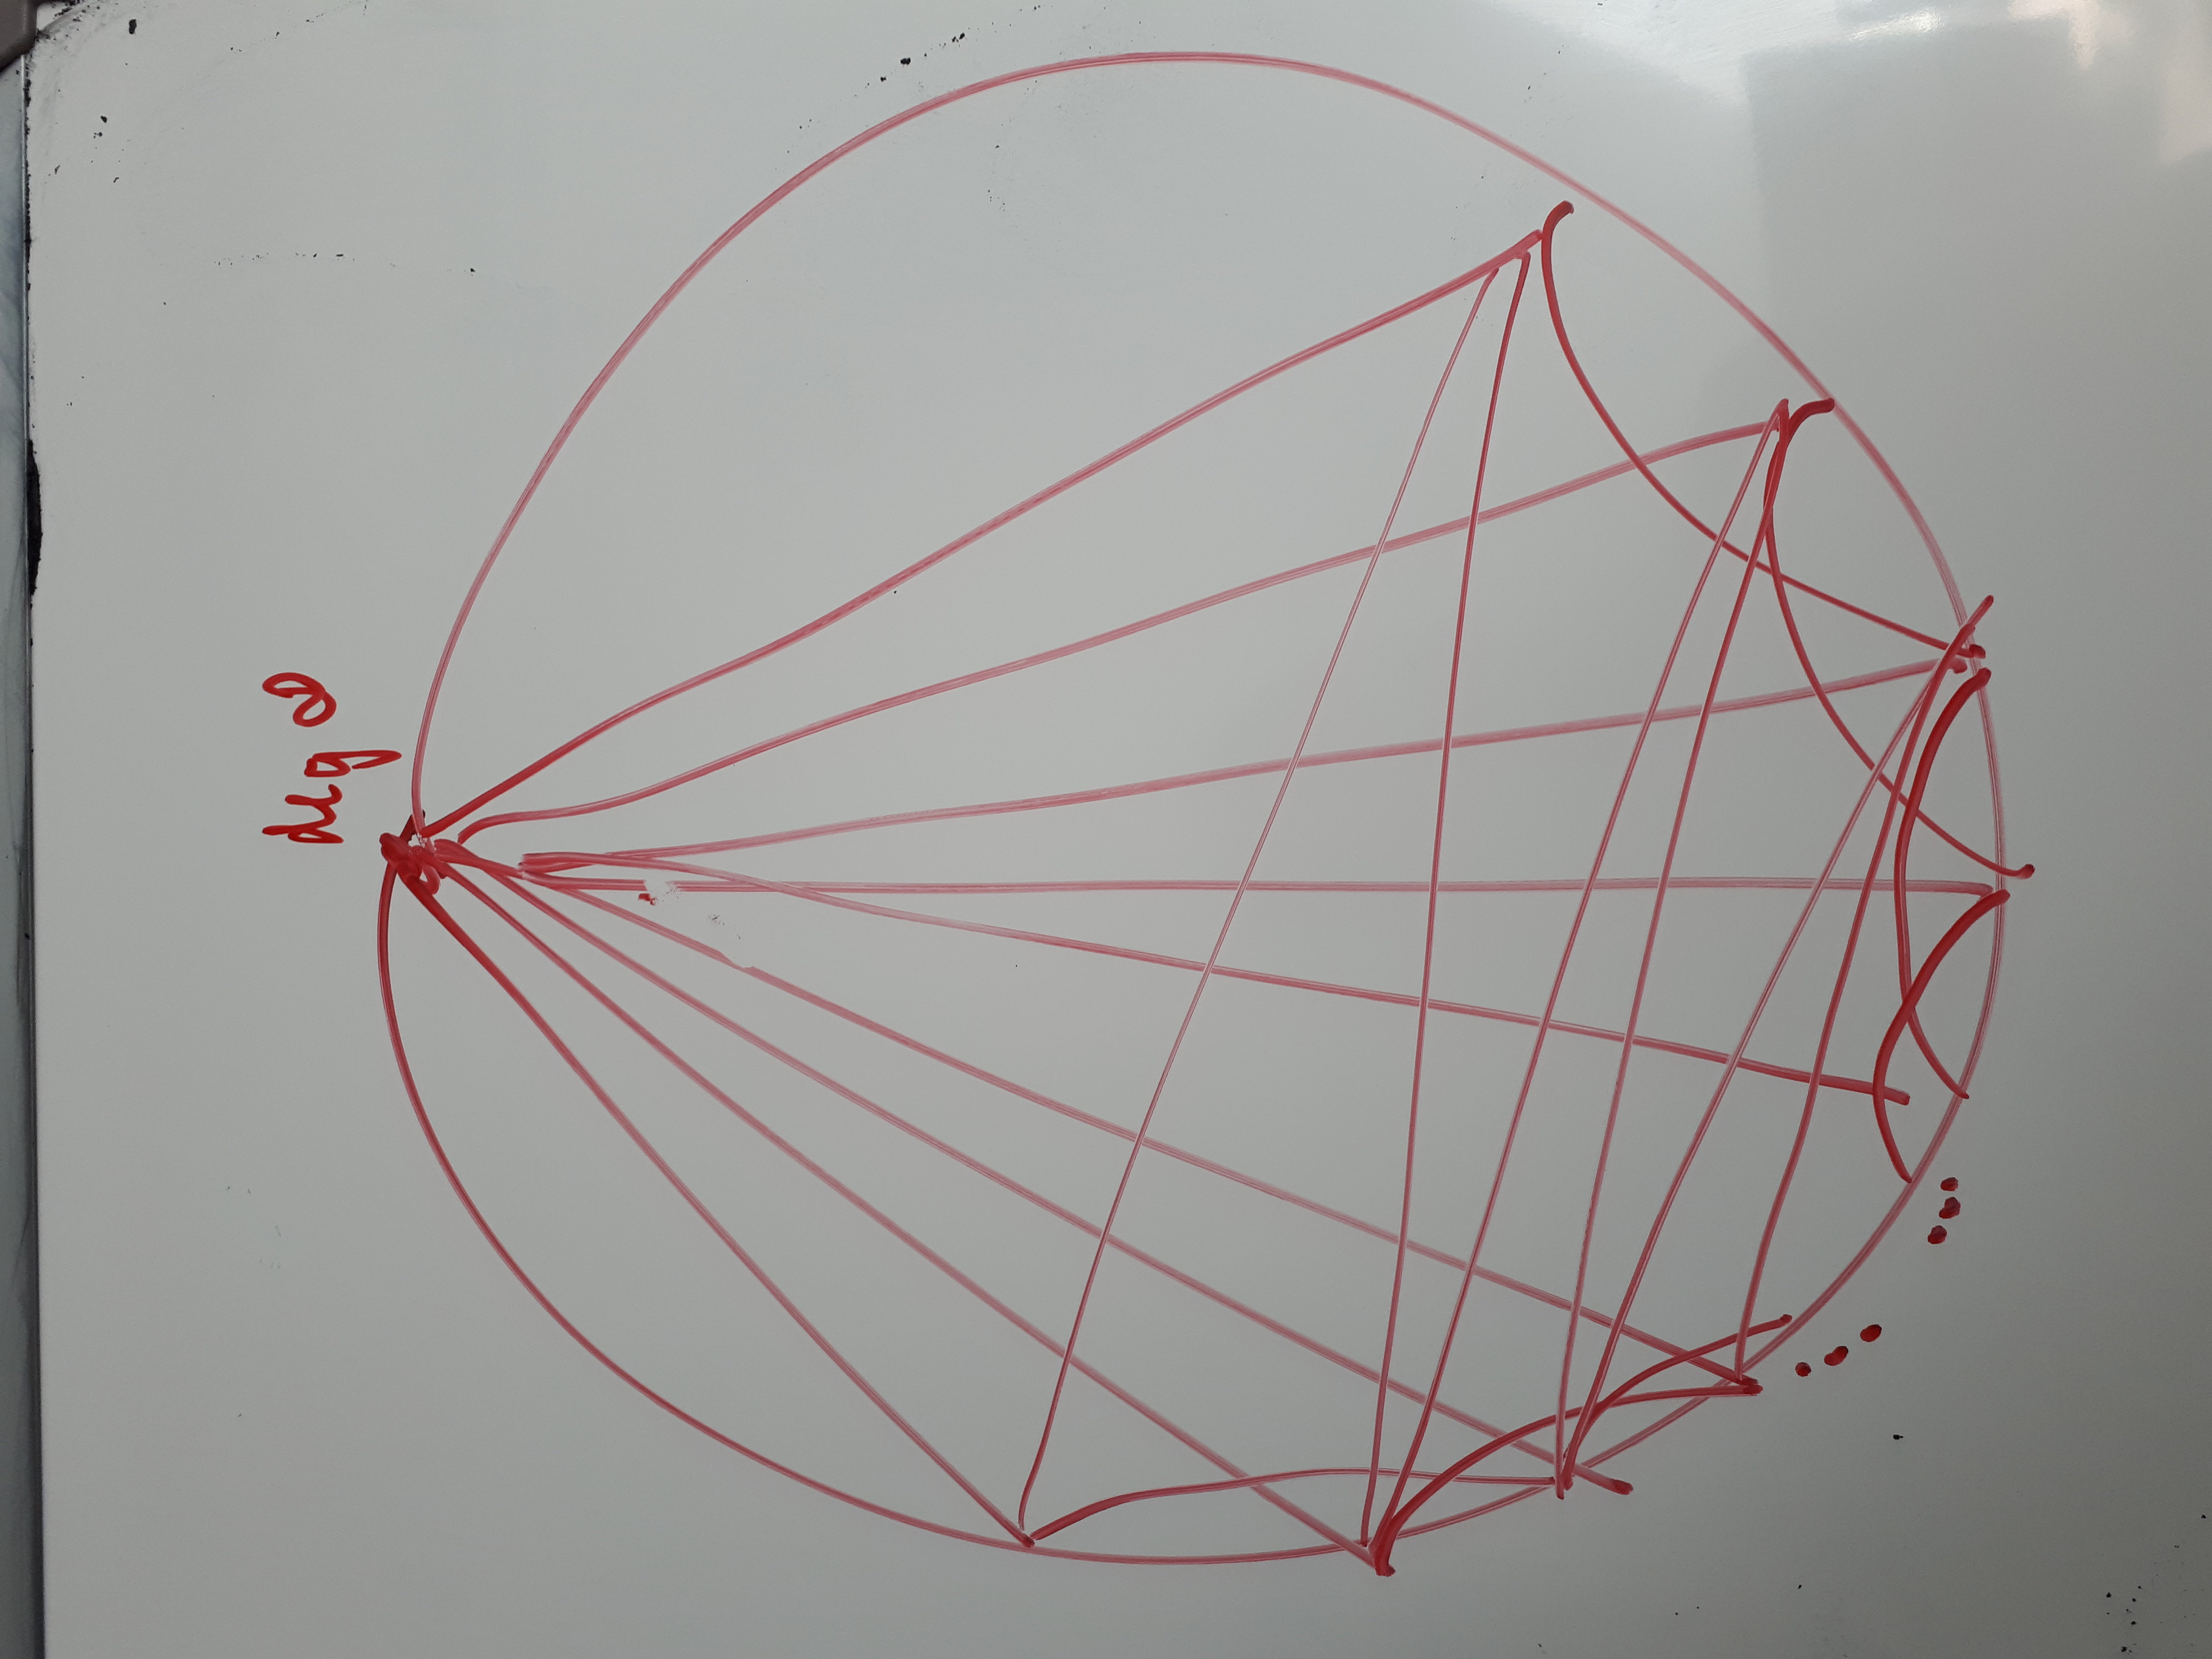 deg ∞